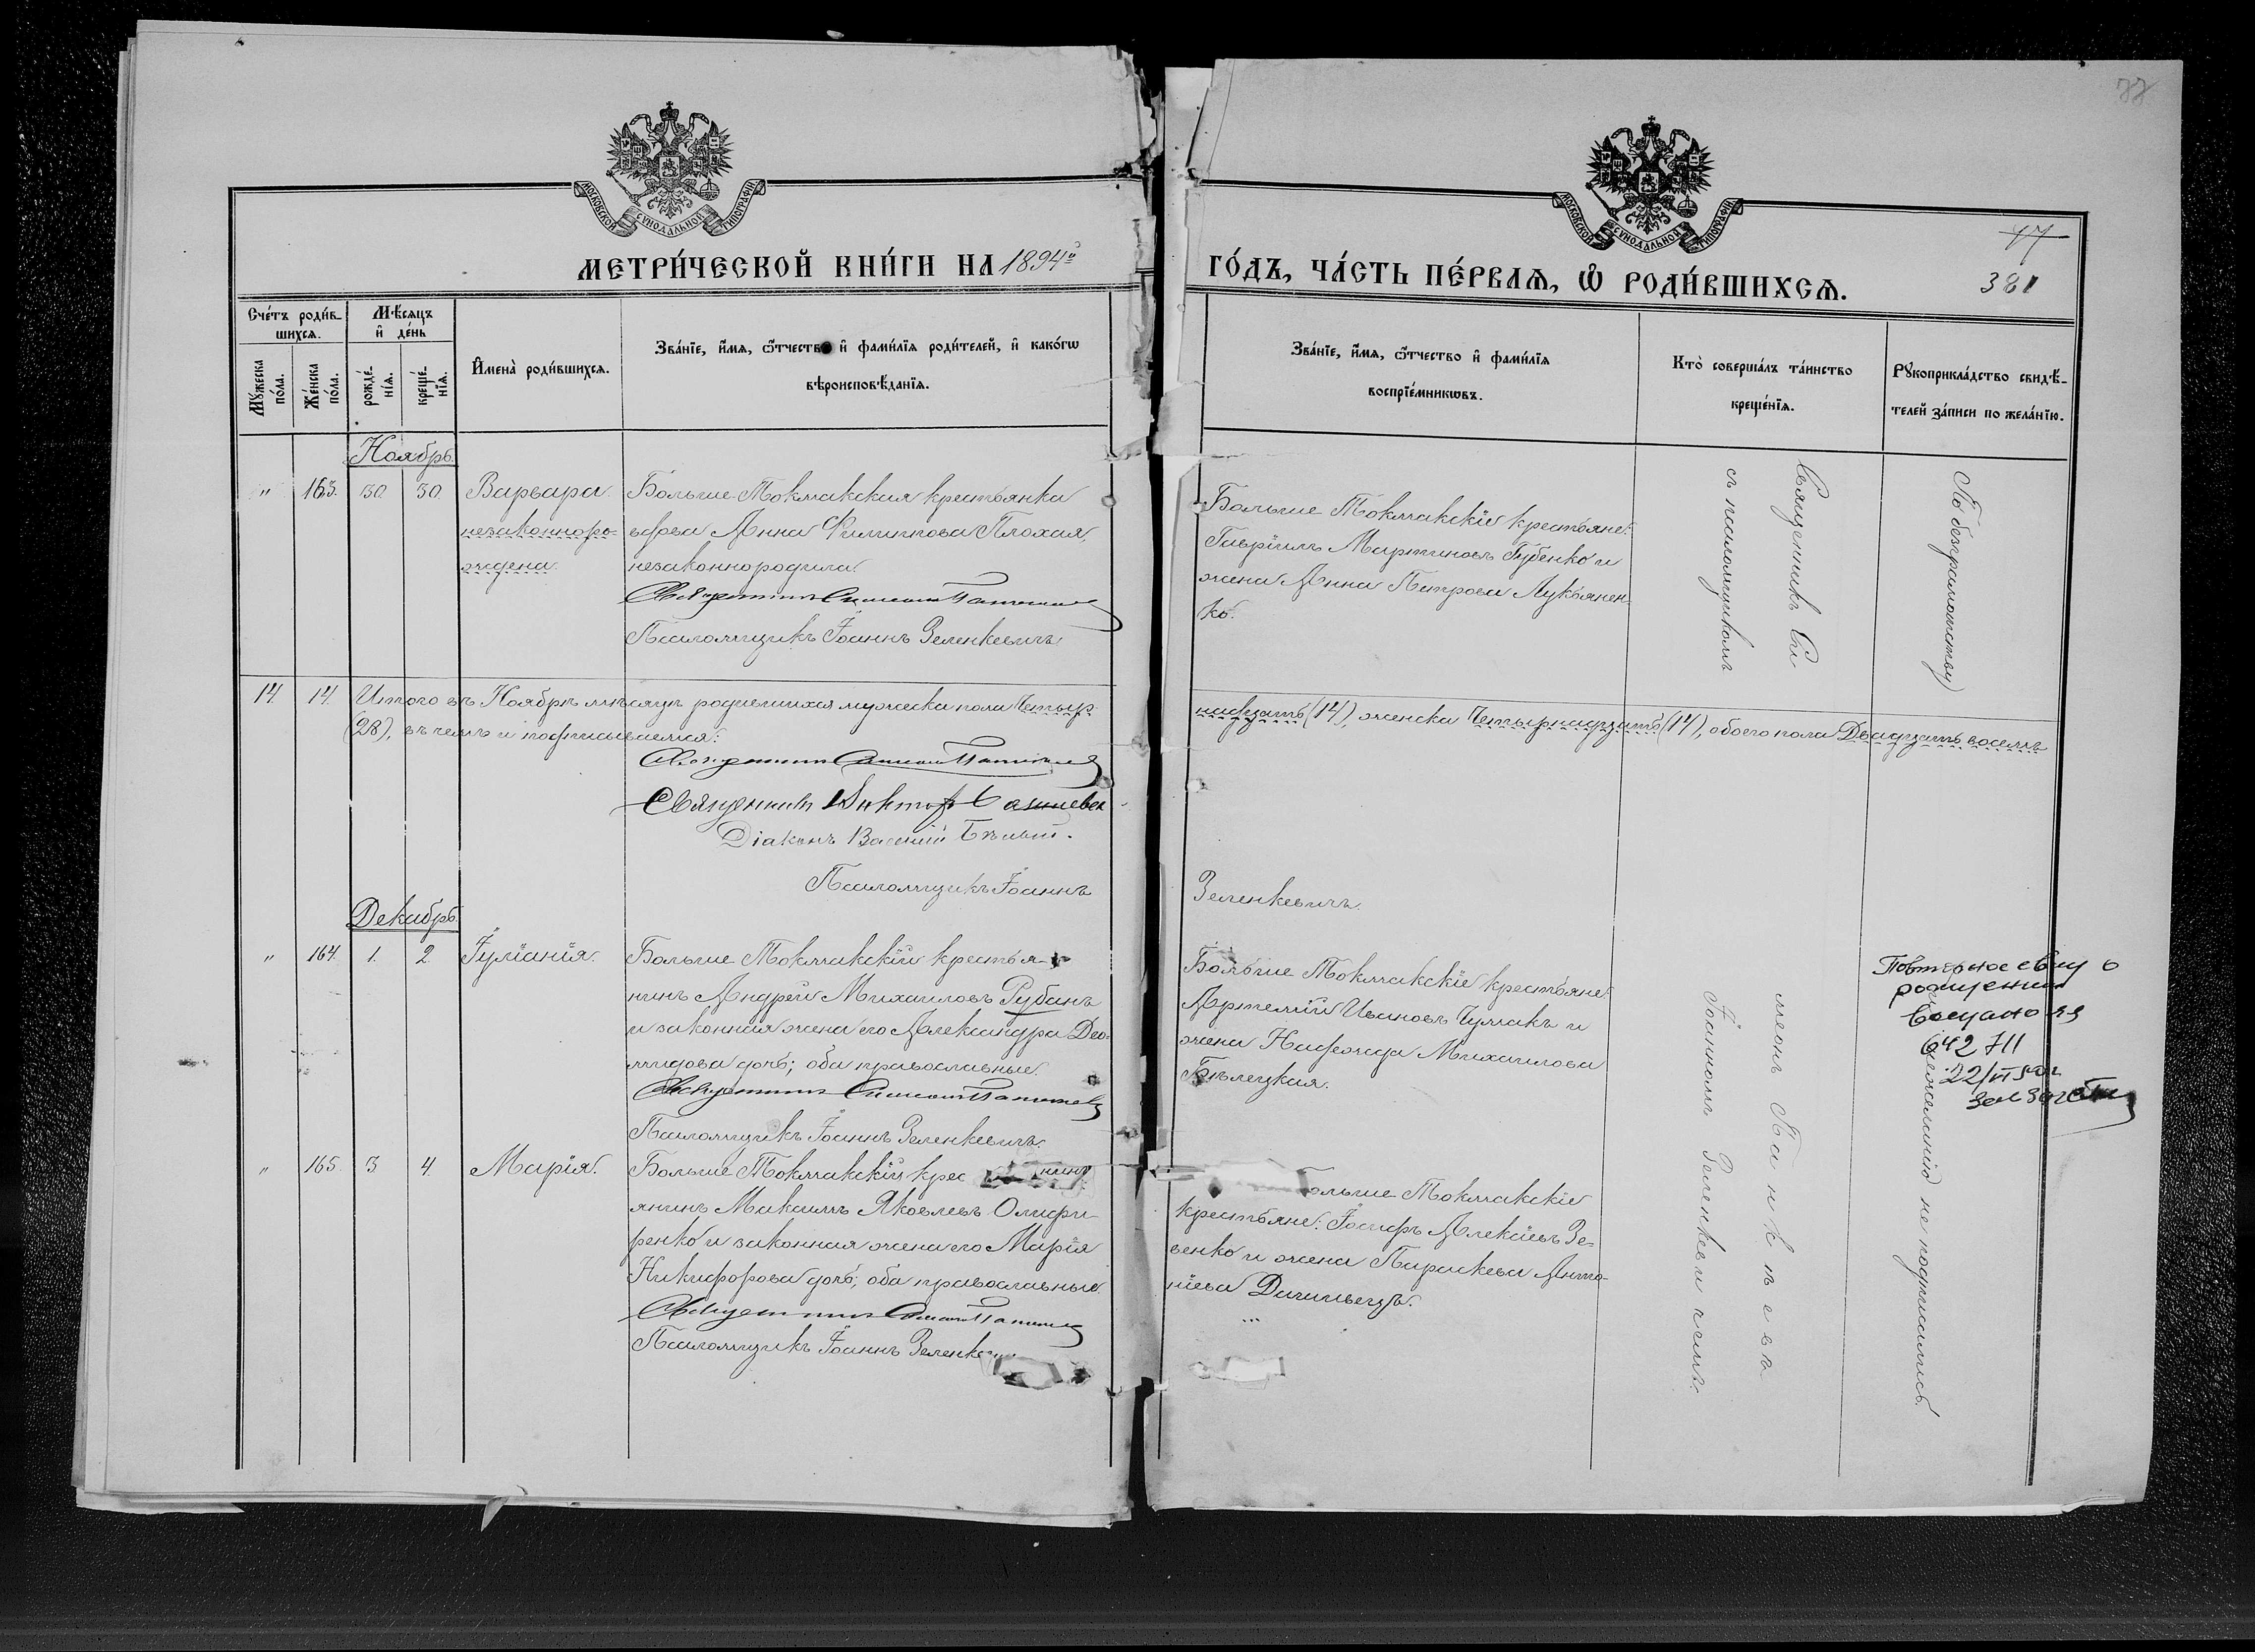 77
МОСКОВСКОЙ СѴНОДАЛЬНОЙ ТИПОГРАФІИ
МОСКОВСКОЙ СѴНОДАЛЬНОЙ ТИПОГРАФІИ
МЕТРИ́ЧЕСКОЙ КНИ́ГИ НА 1894й
ГО́ДЪ, ЧА́СТЬ ПЕ́РВАѦ, Ѡ҆ РОДИ́ВШИХСѦ.
47
381
Сче́тъ роди́в-
шихсѧ.
Мѣ́сѧцъ
и҆ де́нь
Мꙋ́жеска
по́ла.
Же́нска
по́ла.
рожде́-
нїѧ.
креще́-
нїѧ.
И҆мена̀ роди́вшихсѧ.
Зва́нїе, и҆́мѧ, ѻ҆́тчество и҆ фами́лїѧ роди́телей, и҆ како́гѡ
вѣроисповѣ́данїѧ.
Зва́нїе, и҆́мѧ, ѻ҆́тчество и҆ фами́лїѧ
воспрїе́мникѡвъ.
Кто̀ соверша́лъ та́инство
креще́нїѧ.
Рꙋкоприкла́дство свидѣ́-
телей за́писи по жела́нїю.
Ноябрь.
" 163. 30. 30. Варвара
незаконноро-
ждена.
Больше-Токмакская крестьянка
вдова Анна Филиппова Плохая,
незаконнородила.
Священникъ Симеонъ
Псаломщикъ Іоаннъ Зеленкевичъ.
Больше-Токмакскіе крестьяне:
Гавріилъ Мартиновъ Губенко и
жена Анна Петрова Лукьянен-
ко.
Священникъ Си
съ псаломщикомъ
По безграмотству
14. 14. Итого въ Ноябрѣ мѣсяцѣ родившихся мужеска пола Четыр-
надцать (14), женска Четырнадцать (14), обоего пола Двадцать восемь
(28), въ чемъ и подписываемся:
Священникъ Симеонъ
Священникъ Викторъ
Діаконъ Василій Бѣлый.
Псаломщикъ Іоаннъ
Зеленкевичъ.
Декабрь.
" 164. 1. 2. Іуліанія.
Больше-Токмакскій крестья-
нинъ Андрей Михаиловъ Рубанъ
и законная жена его Александра Део-
мидова дочь; оба православные.
Священникъ Симеонъ
Псаломщикъ Іоаннъ Зеленкевичъ.
Больше-Токмакскіе крестьяне:
Артемій Ивановъ Чумакъ и
жена Надежда Михаилова
Бѣлецкая.
меонъ Панкѣевъ
Іоанномъ Зеленкевичемъ.
Повторное свид о
рождении
642711
и нежеланію не подписались.
" 165. 3 4. Марія.
Больше-Токмакскій крес
янинъ Максимъ Яковлевъ Олифи-
ренко и законная жена его Марія
Никифорова дочь; оба православные.
Священникъ Симеонъ
Псаломщикъ Іоаннъ
ольше-Токмакскіе
крестьяне: Іосифъ Алексіевъ Зе-
венко и жена Параскева Анто-
ніева